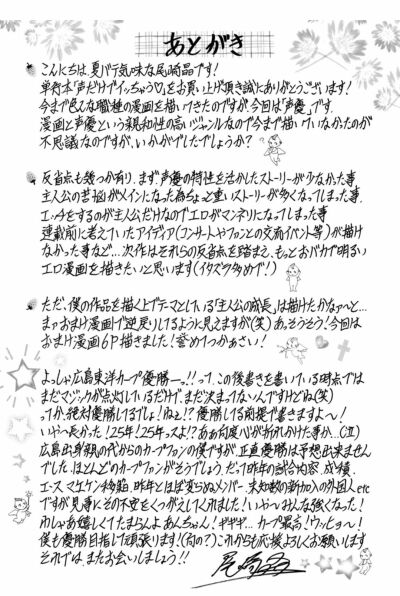 あとがき
こんにちは、夏バテ気味な尾崎晶です!
単行本「声だけでイッちゃう♡」をお買い上げ頂き誠にありがとうございます!
今まで色んな職種の漫画を描いてきたのですが、今回は「声優」です。
漫画と声優という親和性の高いジャンルなので今まで描いていなかったのが
不思議なのですが、いかがでしたでしょうか?
反省点も幾つか有り、まず、声優の特性を活かしたストーリーが少なかった事
主人公の苦悩がメインになった為ちょっと重いストーリーが多くなってしまった事、
エッチをするのが主人公だけなのでエロがマンネリになってしまった事
連載前に考えていたアイディア(コンサートやファンとの交流イベント等)が描け
なかった事など…次作はそれらの反省点を踏まえ、もっとおバカで明るい
エロ漫画を描きたいと思います(イタズラ多めで!)
ただ、僕の作品を描く上でテーマとしている「主人公の成長」は描けたかなァ〜と…
まァおまけ漫画で逆戻りしてるように見えますが(笑)あっそうそう!今回は
おまけ漫画6P描きました!誉めてつかぁさい!
よっしゃ広島東洋カープ優勝ーっ!!って、この後書きを書いている時点では
まだマジックが点灯しているだけで、まだ決まってないんですけどね(笑)
ってか、絶対優勝してるでしょ!ねぇ!?優勝してる前提で書きますよ〜!
いや〜長かった!25年!25年っスよ!?ああ何度心が折れかけた事か…(泣)
広島出身、親の代からのカープファンの僕ですが、正直優勝は予想出来ません
でした、ほとんどのカープファンがそうでしょう、だって昨年の試合内容、成績、
エース、マエケン移籍、昨年とほぼ変らぬメンバー、未知数の新加入の外国人etc
ですが見事にその不安をくつがえしてくれました!いや〜みんな強くなった!
わしゃあ嬉しくてたまらんよあんちゃん!ギギギ…カープ最高!ウッヒョ〜!
僕も優勝目指して頑張ります!(何の?)これからも応援よろしくお願いします
それでは、またお会いしましょう!!
尾崎晶